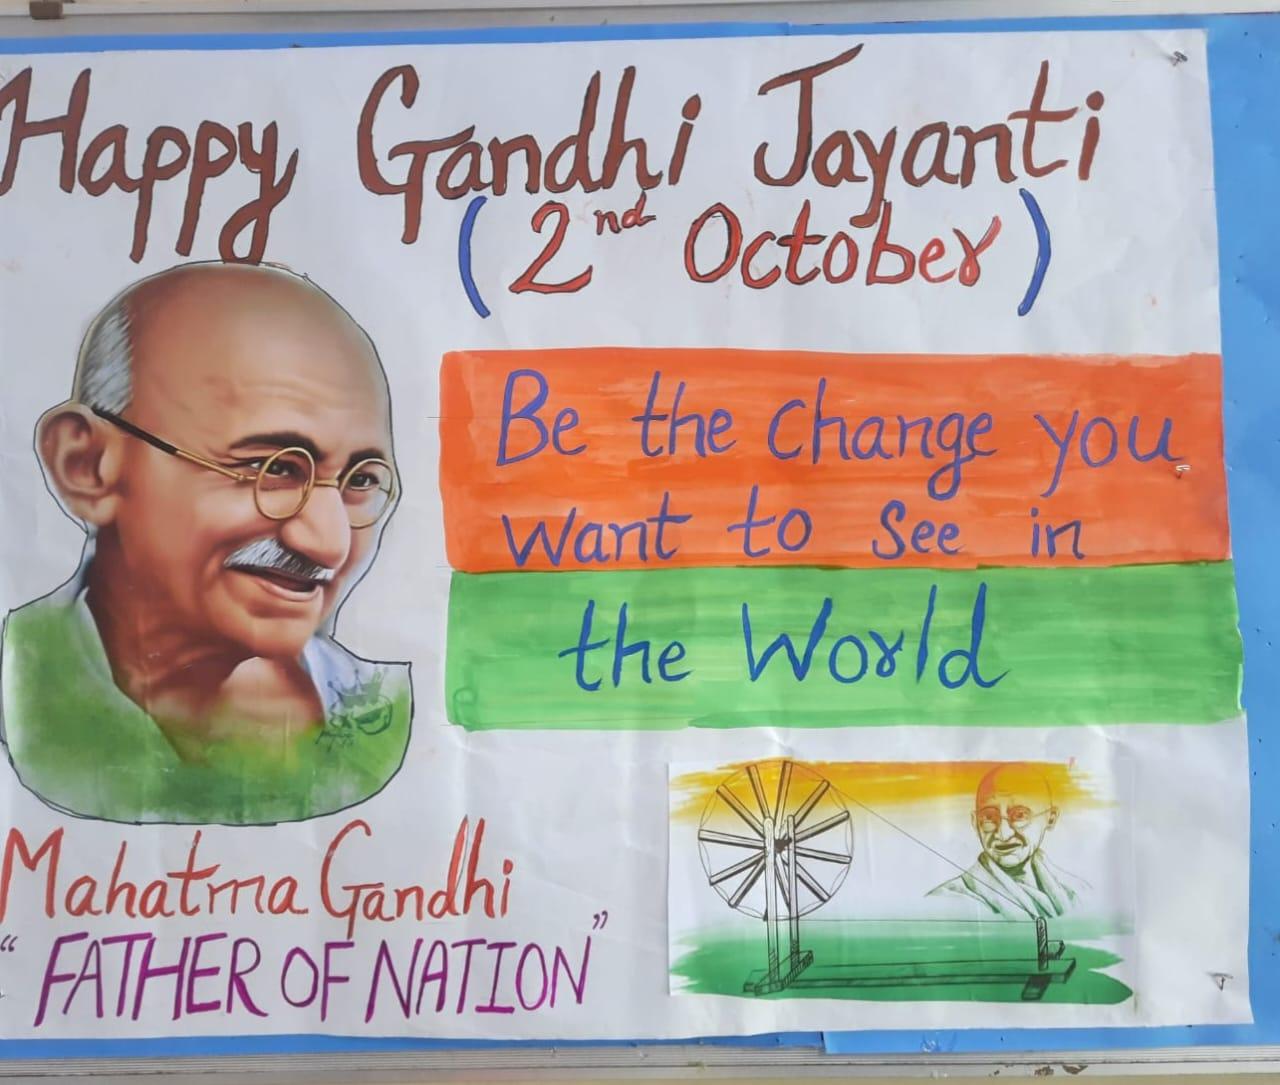 Happy Gandhi Jayanti
(2nd October)
Be the change you
want to see in
the World
Mahatma Gandhi
“FATHER OF NATION”